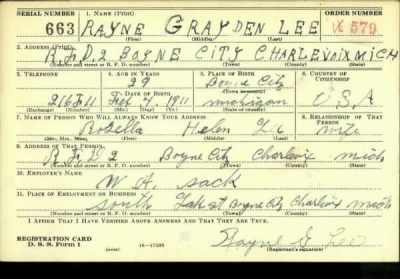 SERIAL NUMBER 1. NAME (Print) ORDER NUMBER
663 RAYNE GRAYDEN LEE 579
(First) (Middle) (Last)
2. ADDRESS (Print)
R.F.D.2 BOYNE CITY CHARLEVOIX MICH
(Number and street or R. F. D. number) (Town) (County) (State)
3. TELEPHONE 4. AGE IN YEARS 5. PLACE OF BIRTH 6. COUNTRY OF CITIZENSHIP
29 Boyne City
DATE OF BIRTH (Town or county)
216F11 Feb 4, 1911 michigan U.S.A
(Exchange) (Number) (Mo.) (Day) (Yr.) (State or country)
7. NAME OF PERSON WHO WILL ALWAYS KNOW YOUR ADDRESS 8. RELATIONSHIP OF THAT PERSON
Rosella Helen Lee wife
(Mr., Mrs., Miss) (First) (Middle) (Last)
9. ADDRESS OF THAT PERSON
Boyne City Charlevoix mich
(Number and street or R. F. D. number) (Town) (County) (State)
10. EMPLOYER'S NAME
sack
11. PLACE OF EMPLOYMENT OR BUSINESS
south Lake st Boyne City Charlevoix mich
(Number and street or R. F. D. number) (Town) (County) (State)
I AFFIRM THAT I HAVE VERIFIED ABOVE ANSWERS AND THAT THEY ARE TRUE.
REGISTRATION CARD
D. S. S. Form 1 (over) Rayne G Lee
(Registrant's signature)